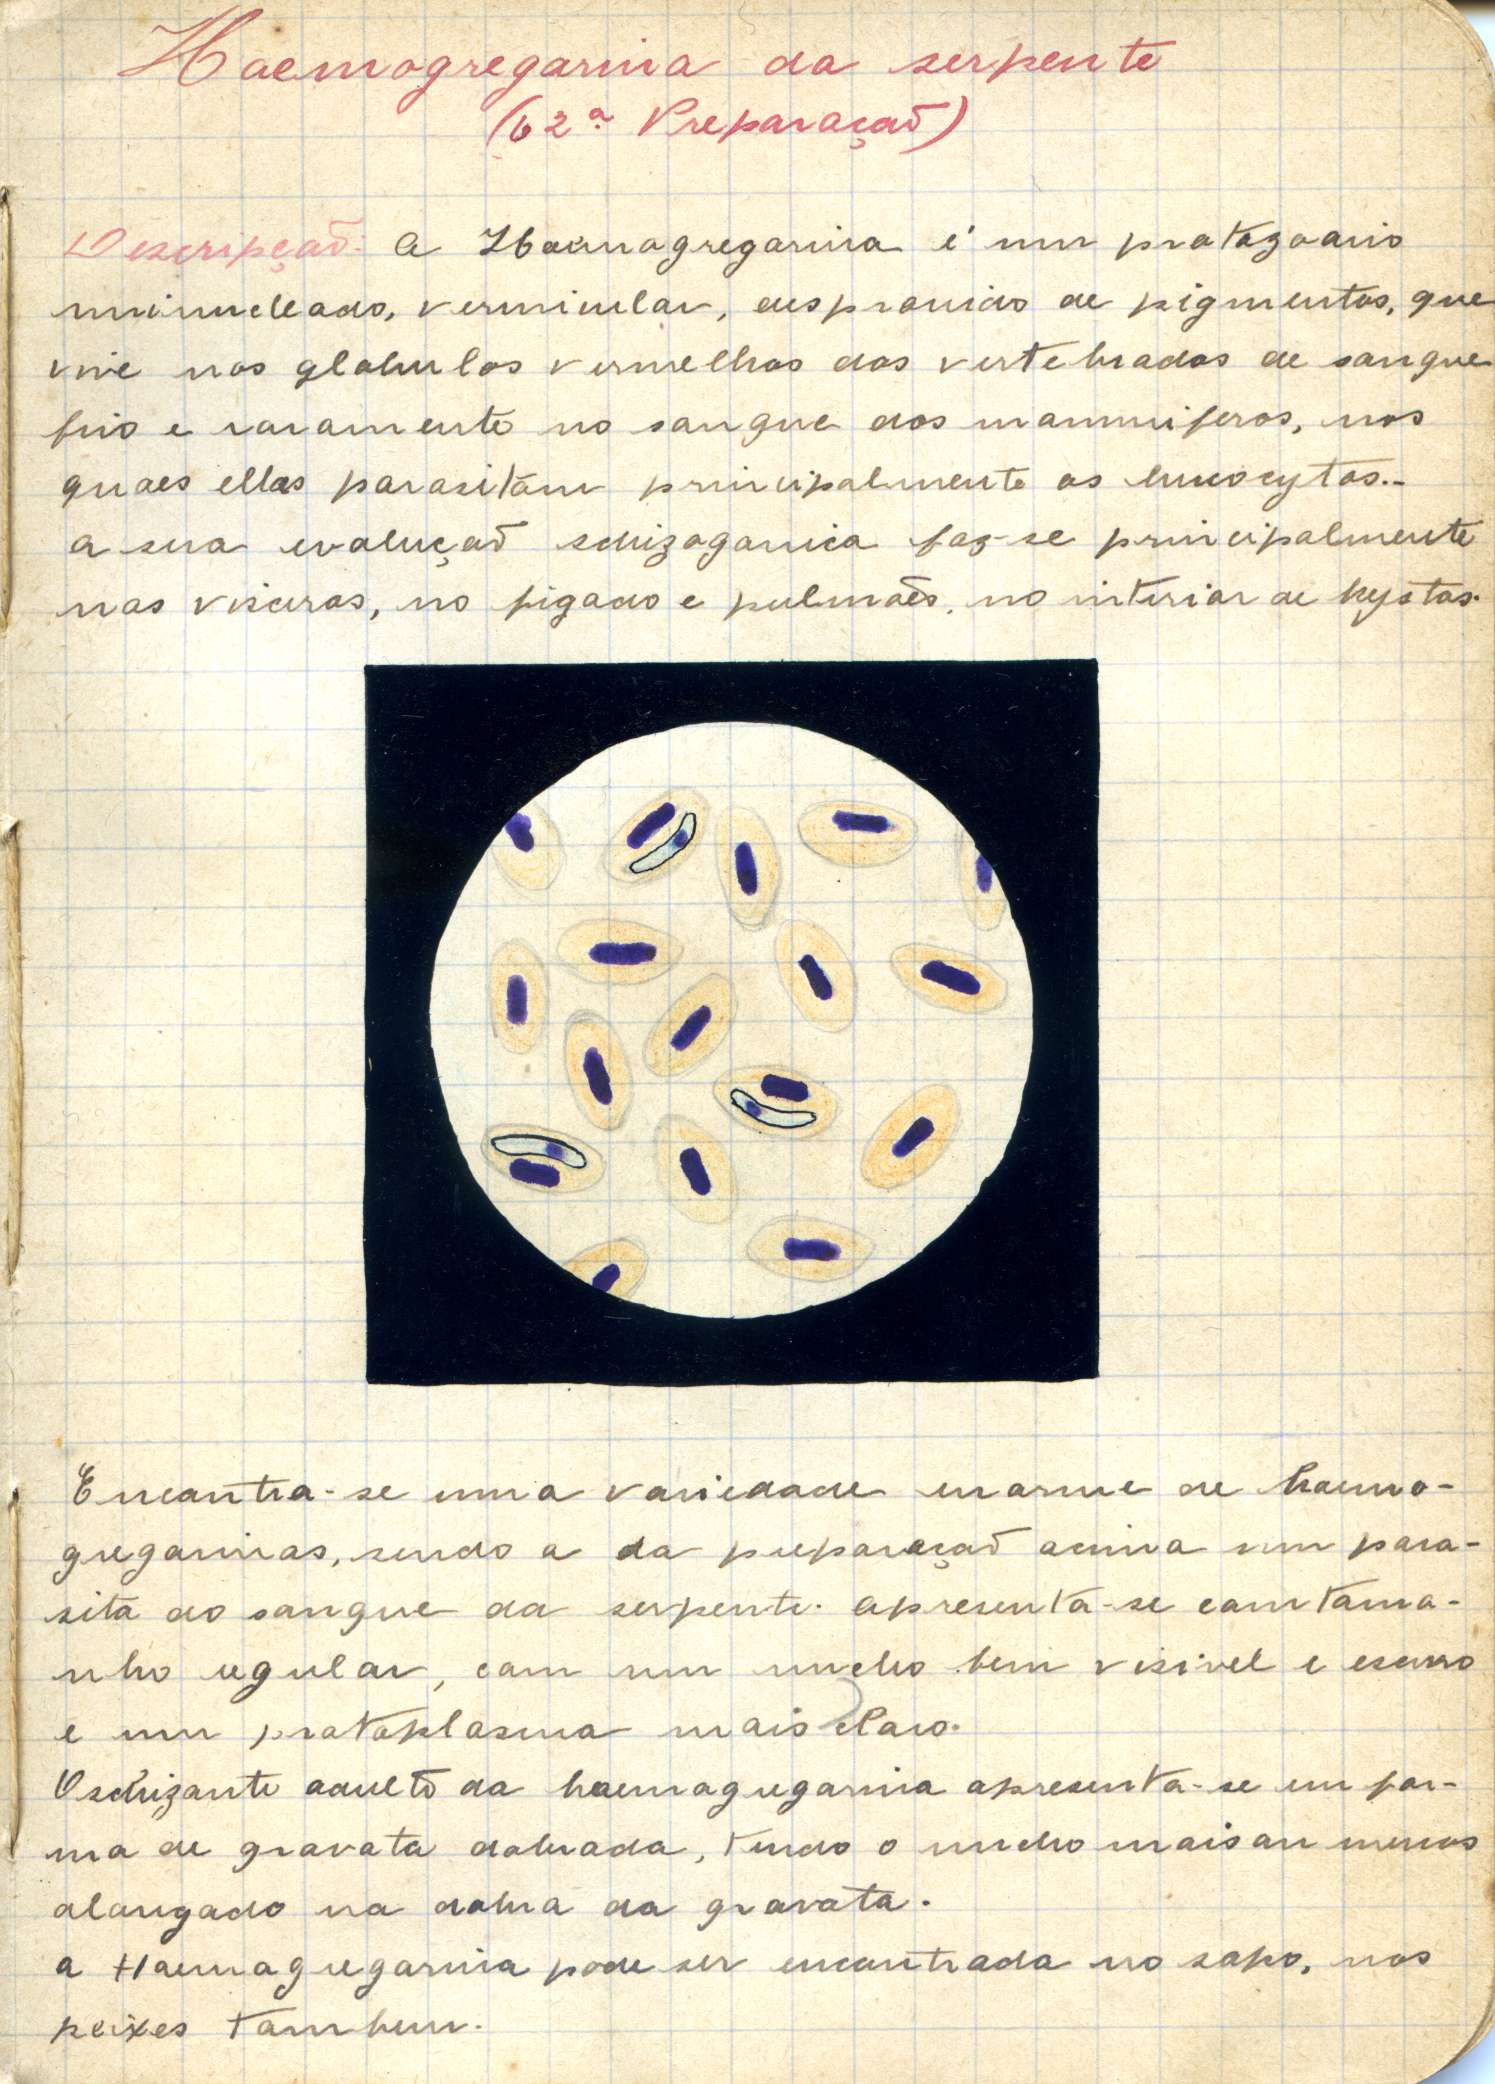 Haemogregarina da serpente
(62ª Preparação)
Descripção: A Haemogregarina é um protozoario
uninucleado, vermicular, desprovido de pigmentos, que
vive nos globulos vermelhos dos vertebrados de sangue
frio e raramente no sangue dos mammiferos, nos
quaes ellas parasitam principalmente os leucocytos.-
a sua evolução schizogonica faz-se principalmente
nas visceras, no figado e pulmões, no interior de kystos.
Encontra-se uma variedade enorme de haemo-
gregarinas, sendo a da preparação acima um para-
sita do sangue da serpente. Apresenta-se com tama-
nho regular, com um nucleo bem visivel e escuro
e um protoplasma mais claro.
O schizonte adulto da haemogregarina apresenta-se em for-
ma de gravata dobrada, tendo o nucleo mais ou menos
alongado na dobra da gravata.
a Haemogregarina pode ser encontrada no sapo, nos
peixes tambem.